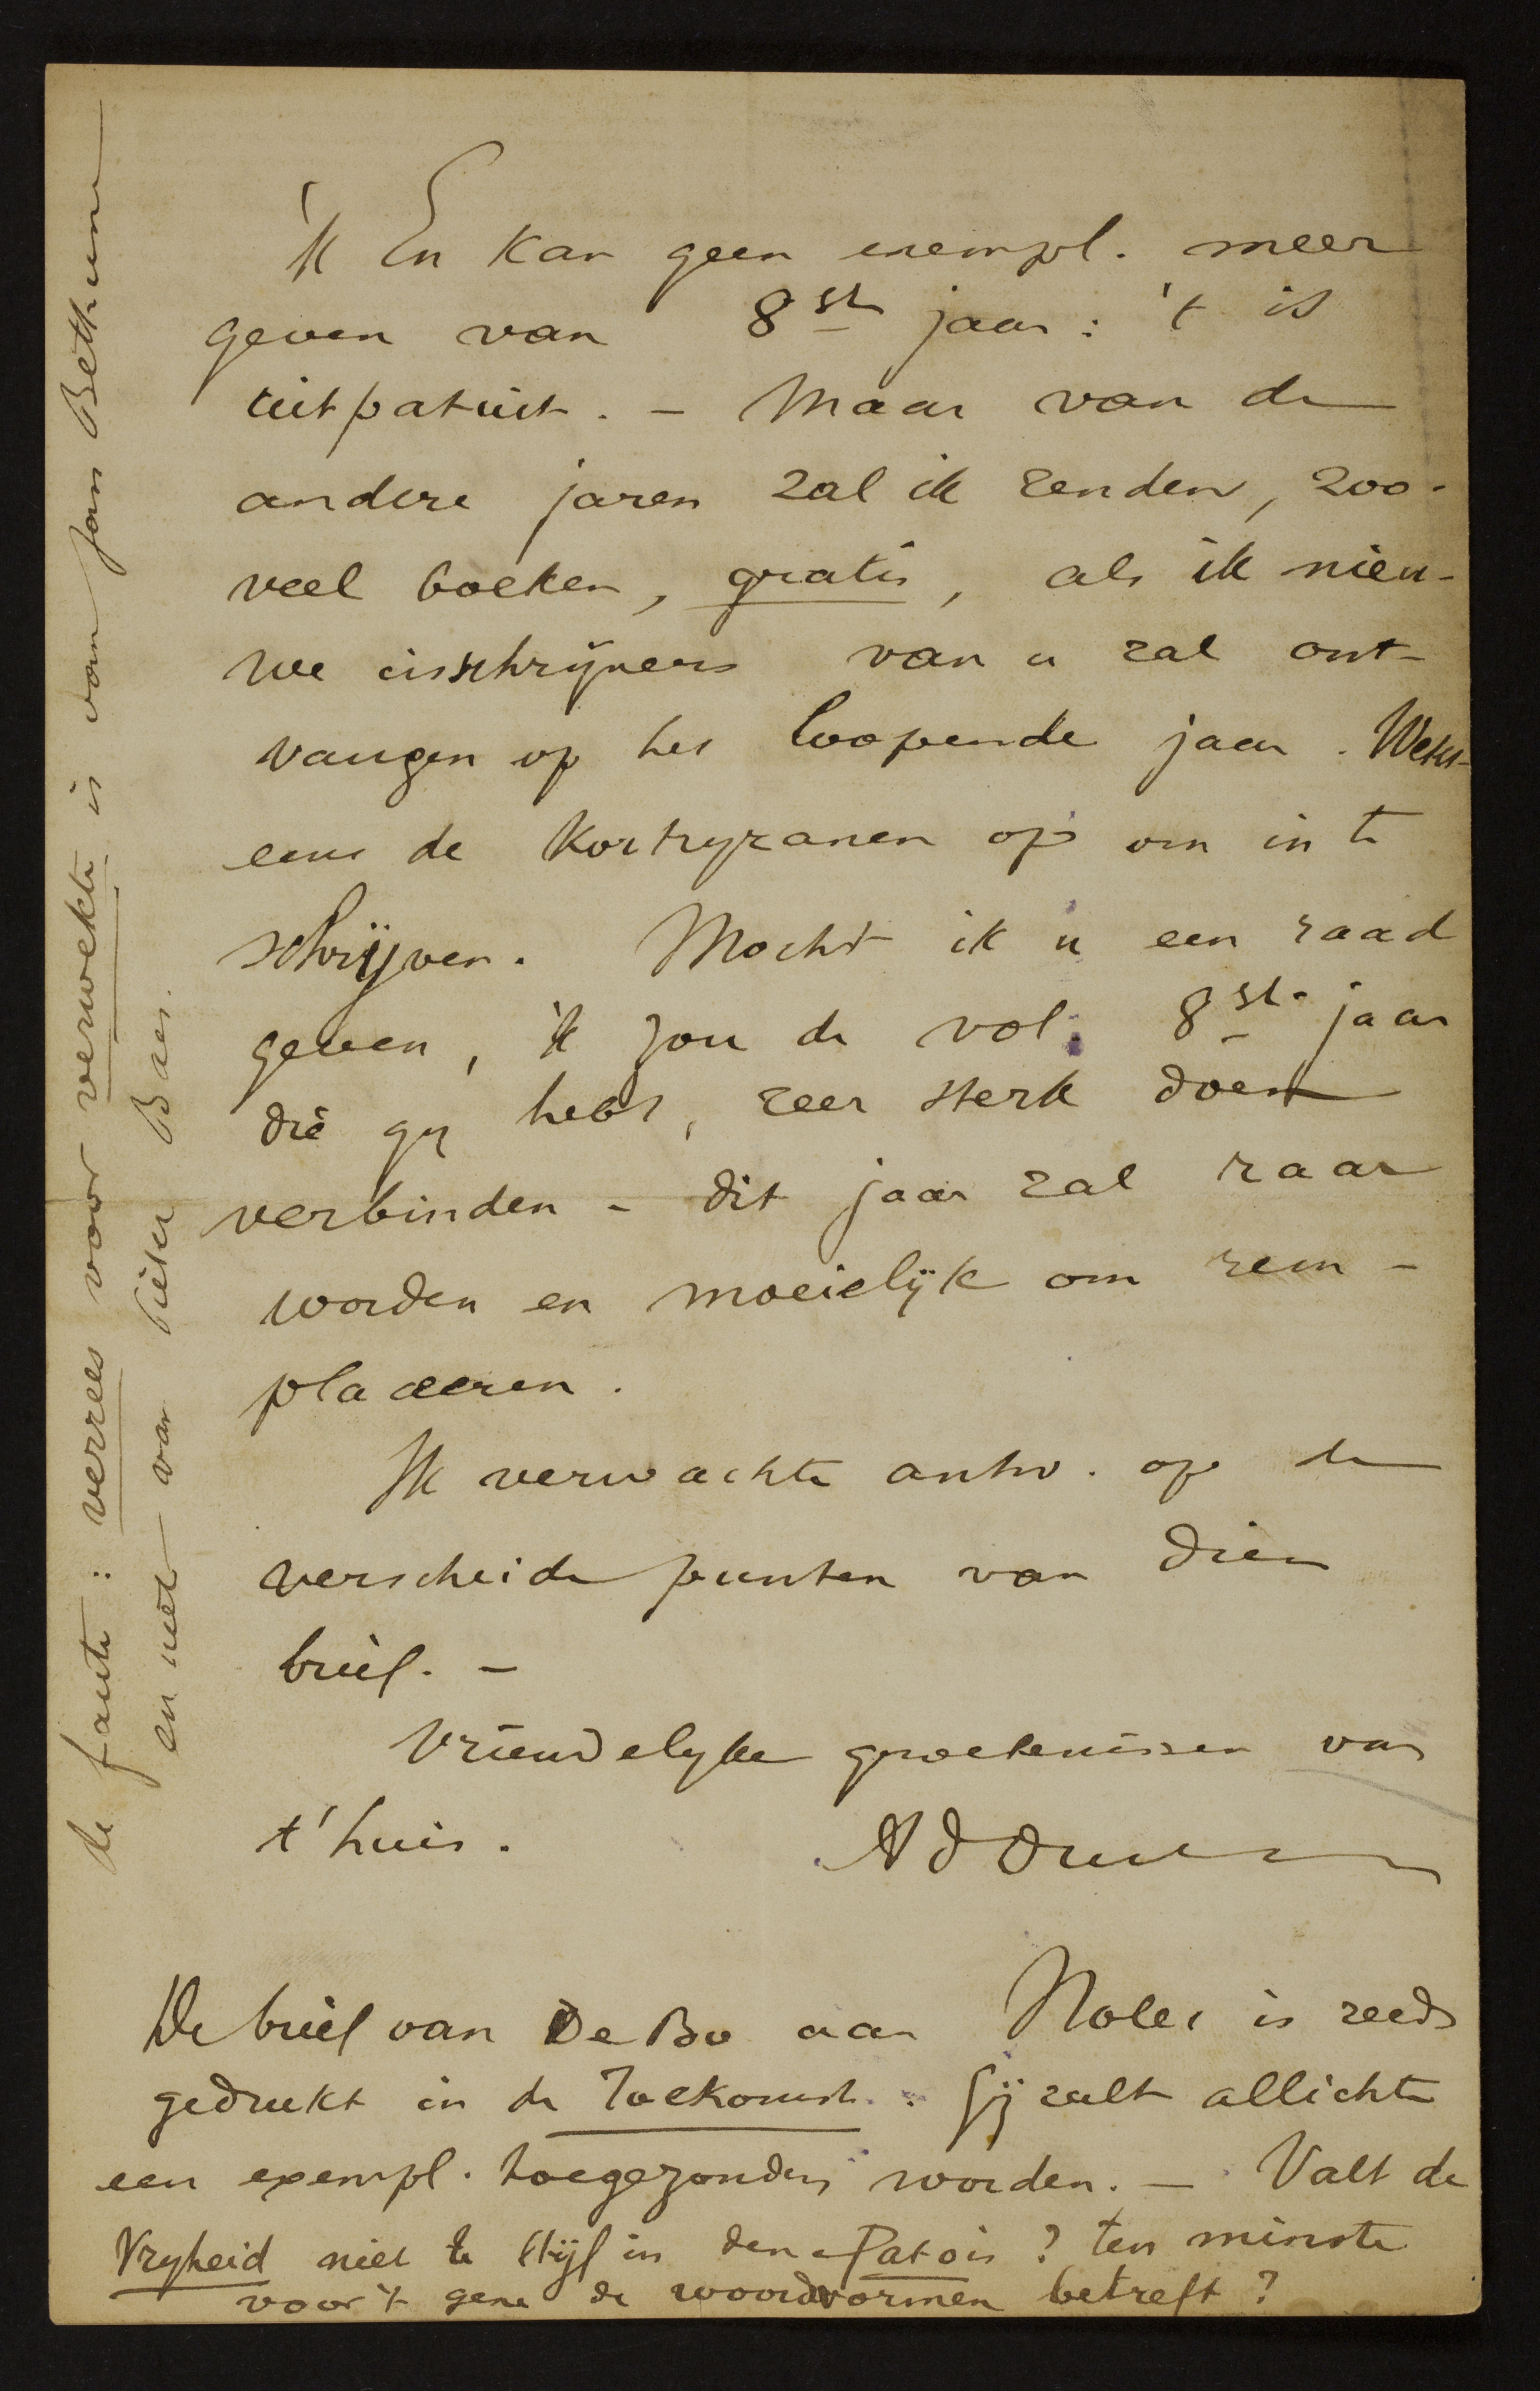 'k En kan geen exempl. meer
geven van 8ste jaar : 't is
uitpatuit. – Maar van de
andere jaren zal ik zenden, zoo-
veel boeken, gratis, als ik nieu-
we inschrijvers van u zal ont-
vangen op het loopende jaar. Wekt
eens de Kortryzanen op om in te
schrijven. Mocht ik u een raad
geven, 'k zou de vol. 8ste jaar
die gy hebt, zeer sterk doen
verbinden – dit jaar zal raar
worden en moeielijk om rem-
placeeren.
Ik verwachte antw. op de
verscheide punten van dien
brief. –
Vriendelyke groetenissen van
t'huis. AdDuc
De brief van De Bo aan Nolet is reeds
gedrukt in de Toekomst. : Gij zult allichte
een exempl. toegezonden worden. – Valt de
Vryheid niet te stijf in den Patois ? ten minste
voor 't gene de woordvormen betreft ?
de faute : verrees voor verwekte is van Jan Bethune
en niet van Pieter Baes.